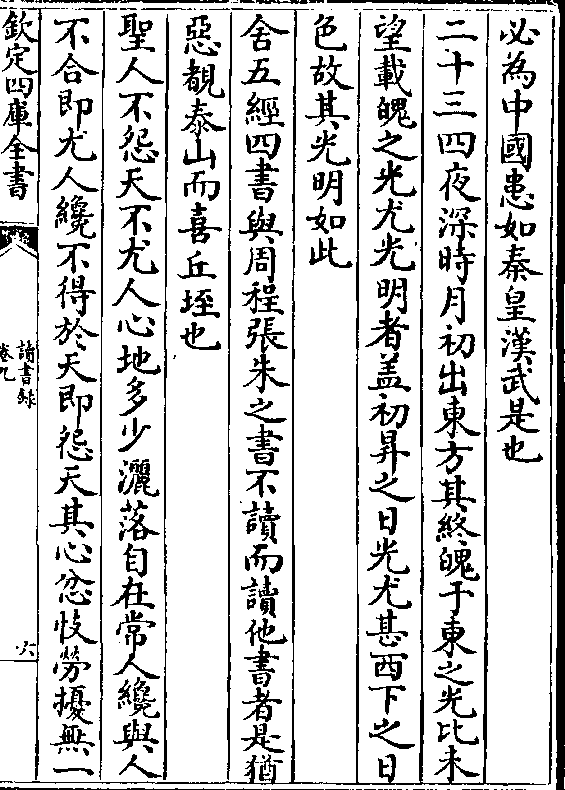 必為中國患如秦皇漢武是也
二十三四夜深時月初出東方其終魄于東之光比未
望載魄之光尤光明者盖初昇之日光尤甚西下之日
色故其光明如此
舍五經四書與周程張朱之書不讀而讀他書者是猶
惡覩泰山而喜丘垤也
聖人不怨天不尤人心地多少灑落自在常人纔與人
不合即尤人纔不得於天即怨天其心忿忮勞擾無一
欽定四庫全書
讀書録
卷九
六